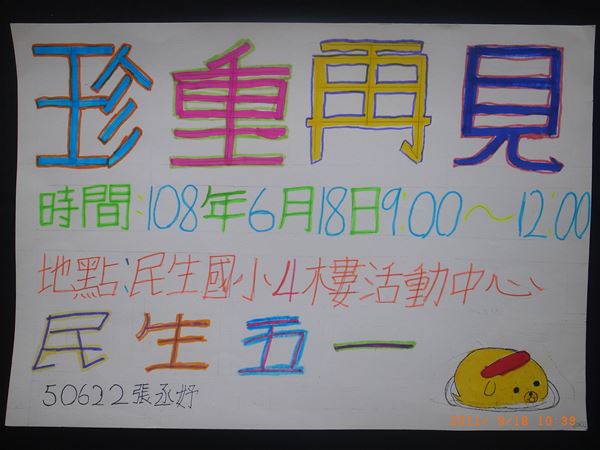 珍重再見
時間:108年6月18日9:00～12:00
地點:民生國小4樓活動中心
民生五一
50622張丞妤